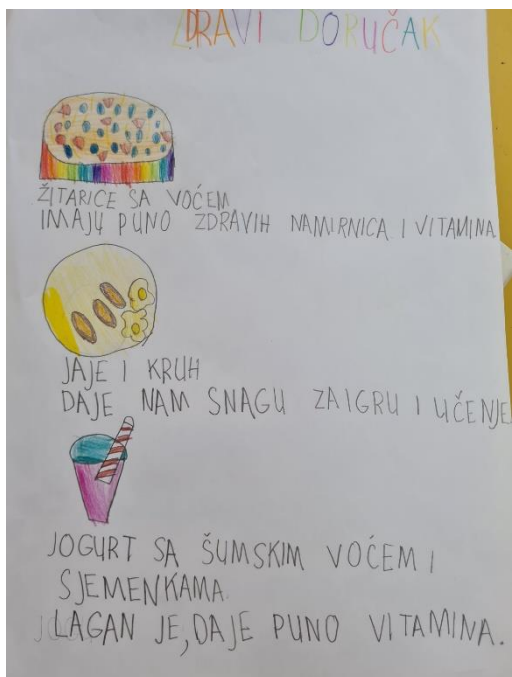 ZDRAVI DORUČAK
ŽITARICE SA VOĆEM
IMAJU PUNO ZDRAVIH NAMIRNICA I VITAMINA
JAJE I KRUH
DAJE NAM SNAGU ZA IGRU I UČENJE
JOGURT SA ŠUMSKIM VOĆEM I
SJEMENKAMA.
LAGAN JE, DAJE PUNO VITAMINA.